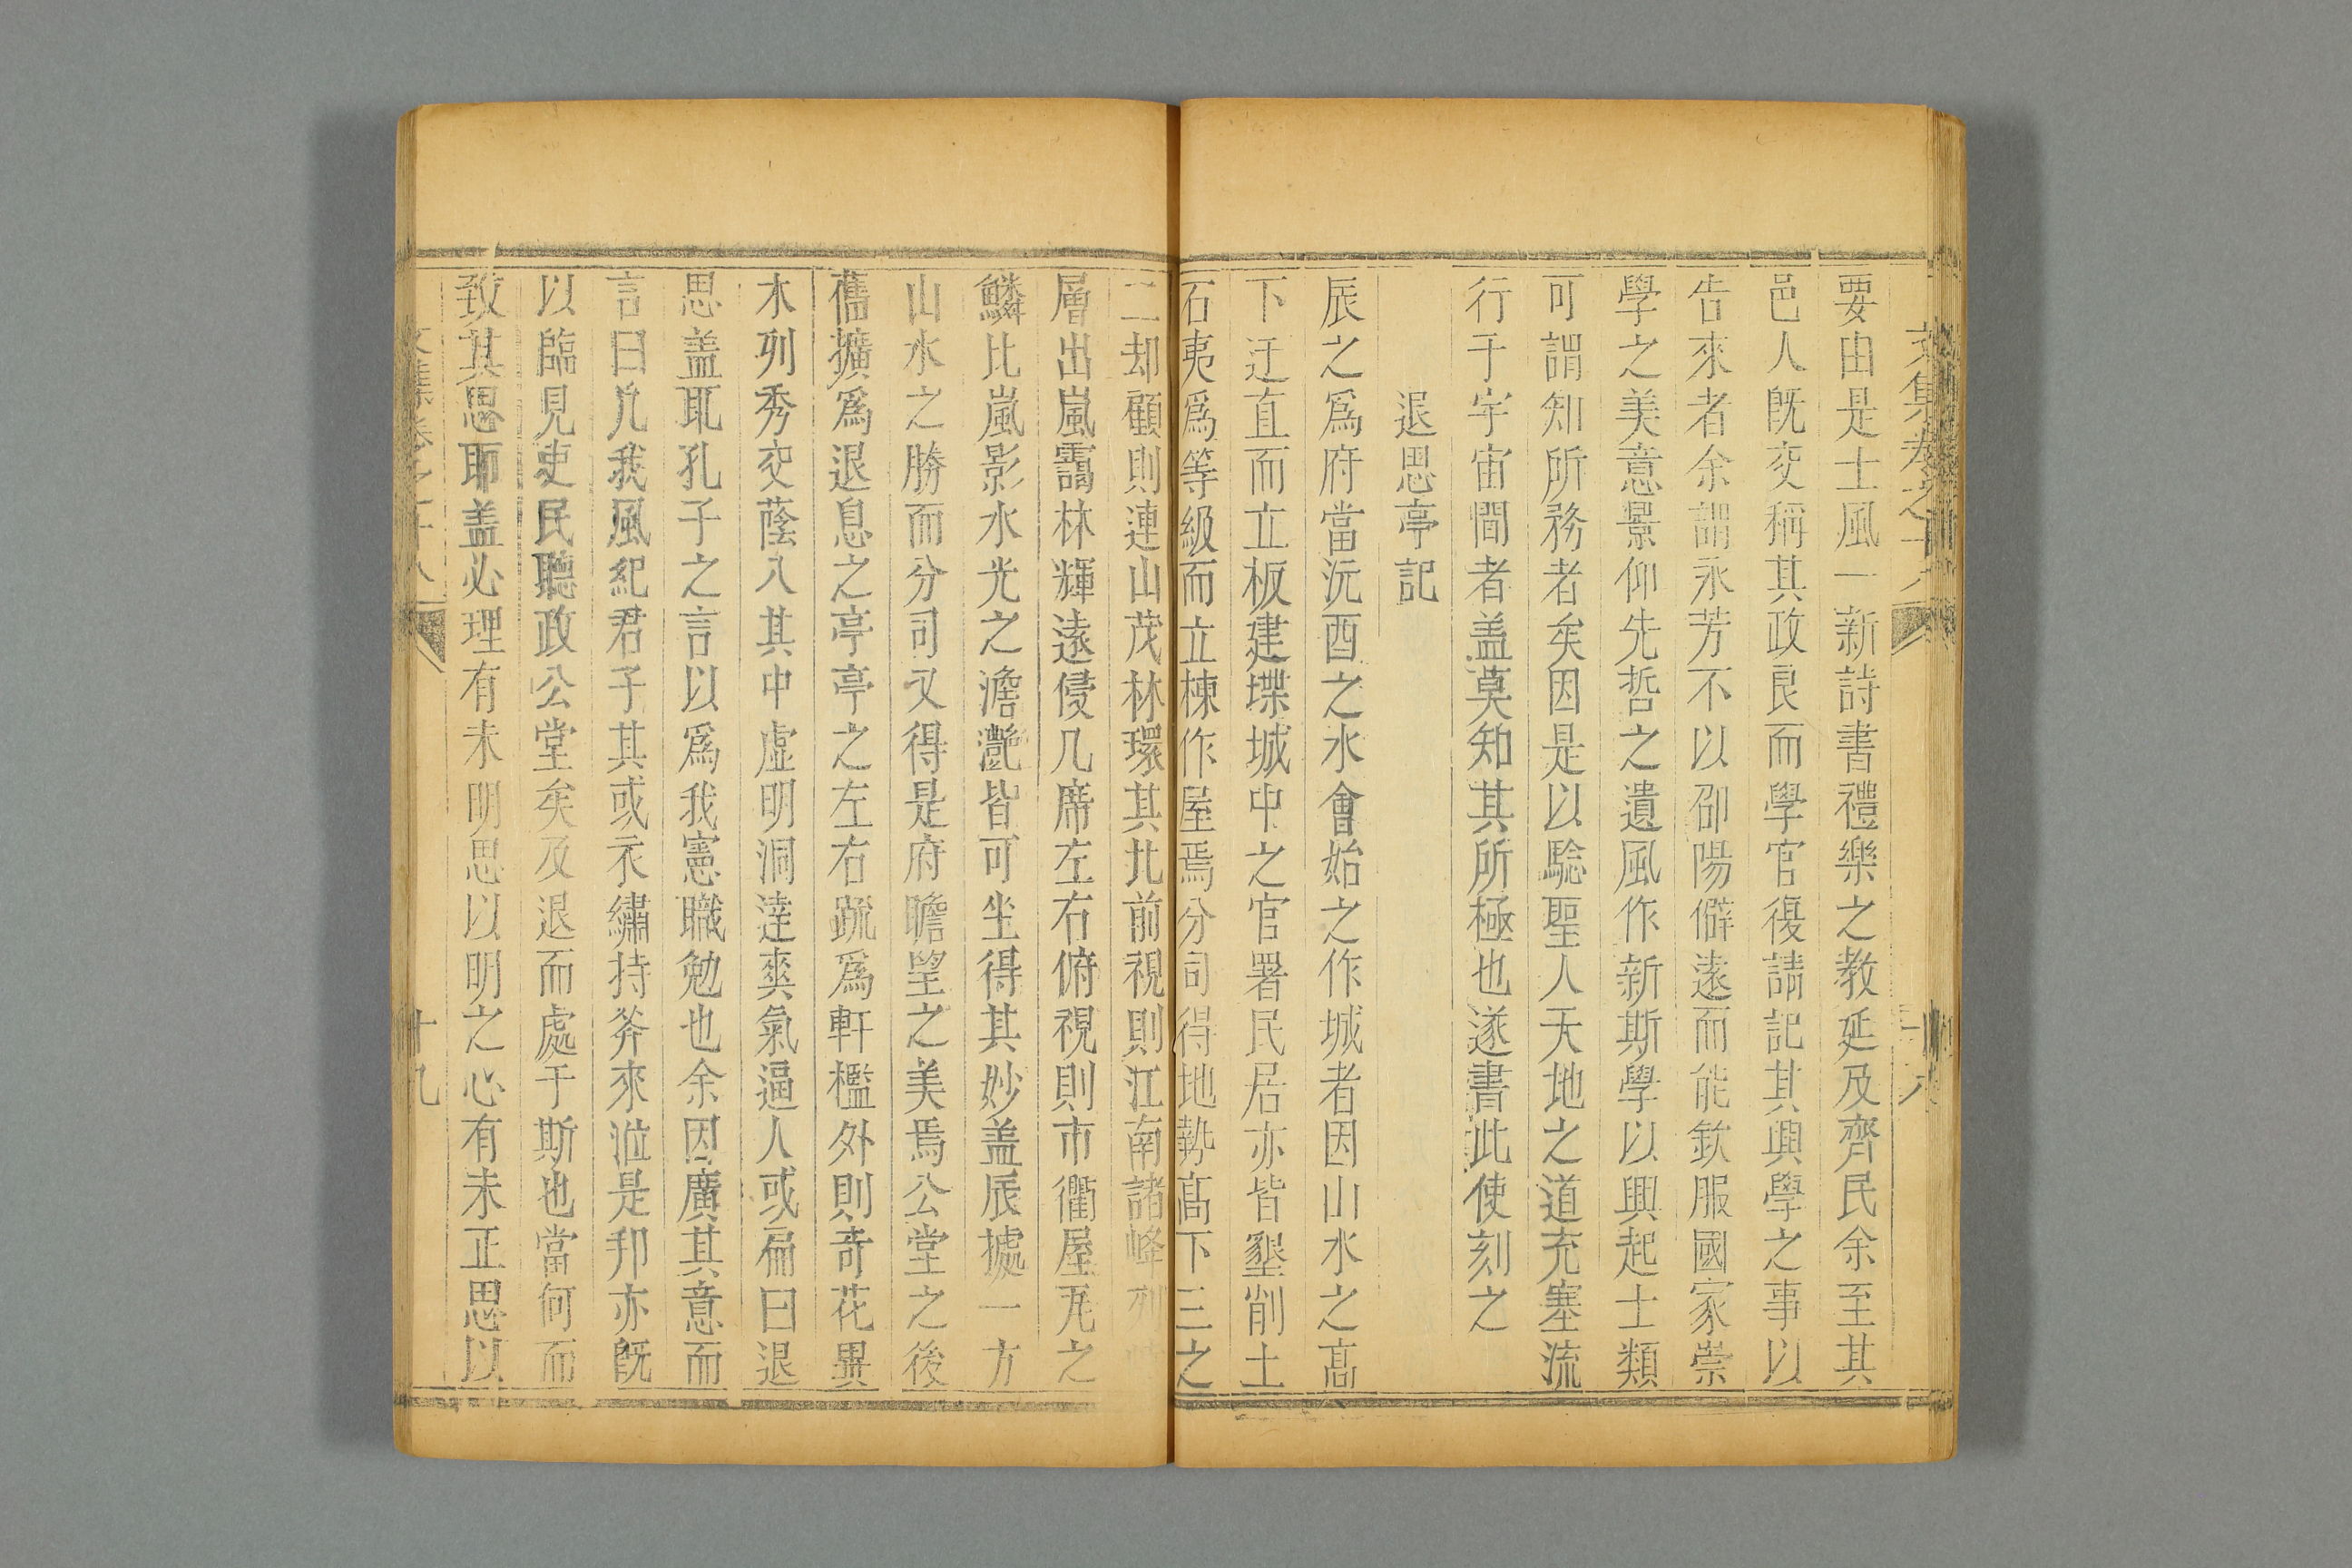 文集卷之十八
十八
要由是士風一新詩書禮樂之教延及齊民余至其
邑人旣交稱其政良而學官復請記其興學之事以
告來者余謂永芳不以卲陽僻遠而能欽服國家崇
學之美意景仰先哲之遺風作新斯學以興起士類
可謂知所務者矣因是以驗聖人天地之道充塞流
行于宇宙間者盖莫知其所極也遂書此使刻之
退思亭記
辰之爲府當沅酉之水會始之作城者因山水之髙
下迂直而立板建堞城中之官署民居亦皆墾削土
石夷爲等級而立棟作屋焉分司得地勢髙下三之
二却顧則連山茂林環其北前視則江南諸峰列
層出嵐靄林輝遠侵几席左右俯視則市衢屋瓦之
鱗比嵐影水光之澹灧皆可坐得其妙盖辰據一方
山水之勝而分司又得是府瞻望之美焉公堂之後
舊擴爲退息之亭亭之左右䟽爲軒檻外則奇花異
木列秀交蔭入其中虛明洞達爽氣逼人或扁曰退
思盖耴孔子之言以爲我憲職勉也余因廣其意而
言曰凢我風紀君子其或衣繡持斧來涖是邦亦旣
以臨見吏民聽政公堂矣及退而處于斯也當何而
致其思耶盖必理有未明思以明之心有未正思以
文集卷之十八
十九